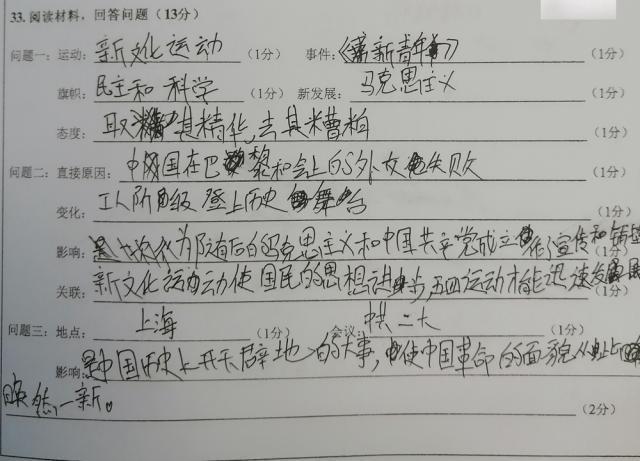 33. 阅读材料，回答问题（13分）
问题一：运动：新文化运动（1分） 事件：《新青年》（1分）
旗帜：民主和科学（1分） 新发展：马克思主义（1分）
态度：取其精华，去其糟粕（1分）
问题二：直接原因：中国在巴黎和会上的外交失败（1分）
变化：工人阶级登上历史舞台（1分）
影响：为随后的马克思主义和中国共产党成立作了宣传和铺垫（1分）
关联：新文化运动使国民的思想进步，五四运动才能迅速发展（1分）
问题三：地点：上海（1分） 会议：中共二大（1分）
影响：是中国历史上开天辟地的大事，使中国革命的面貌从此
焕然一新。（2分）